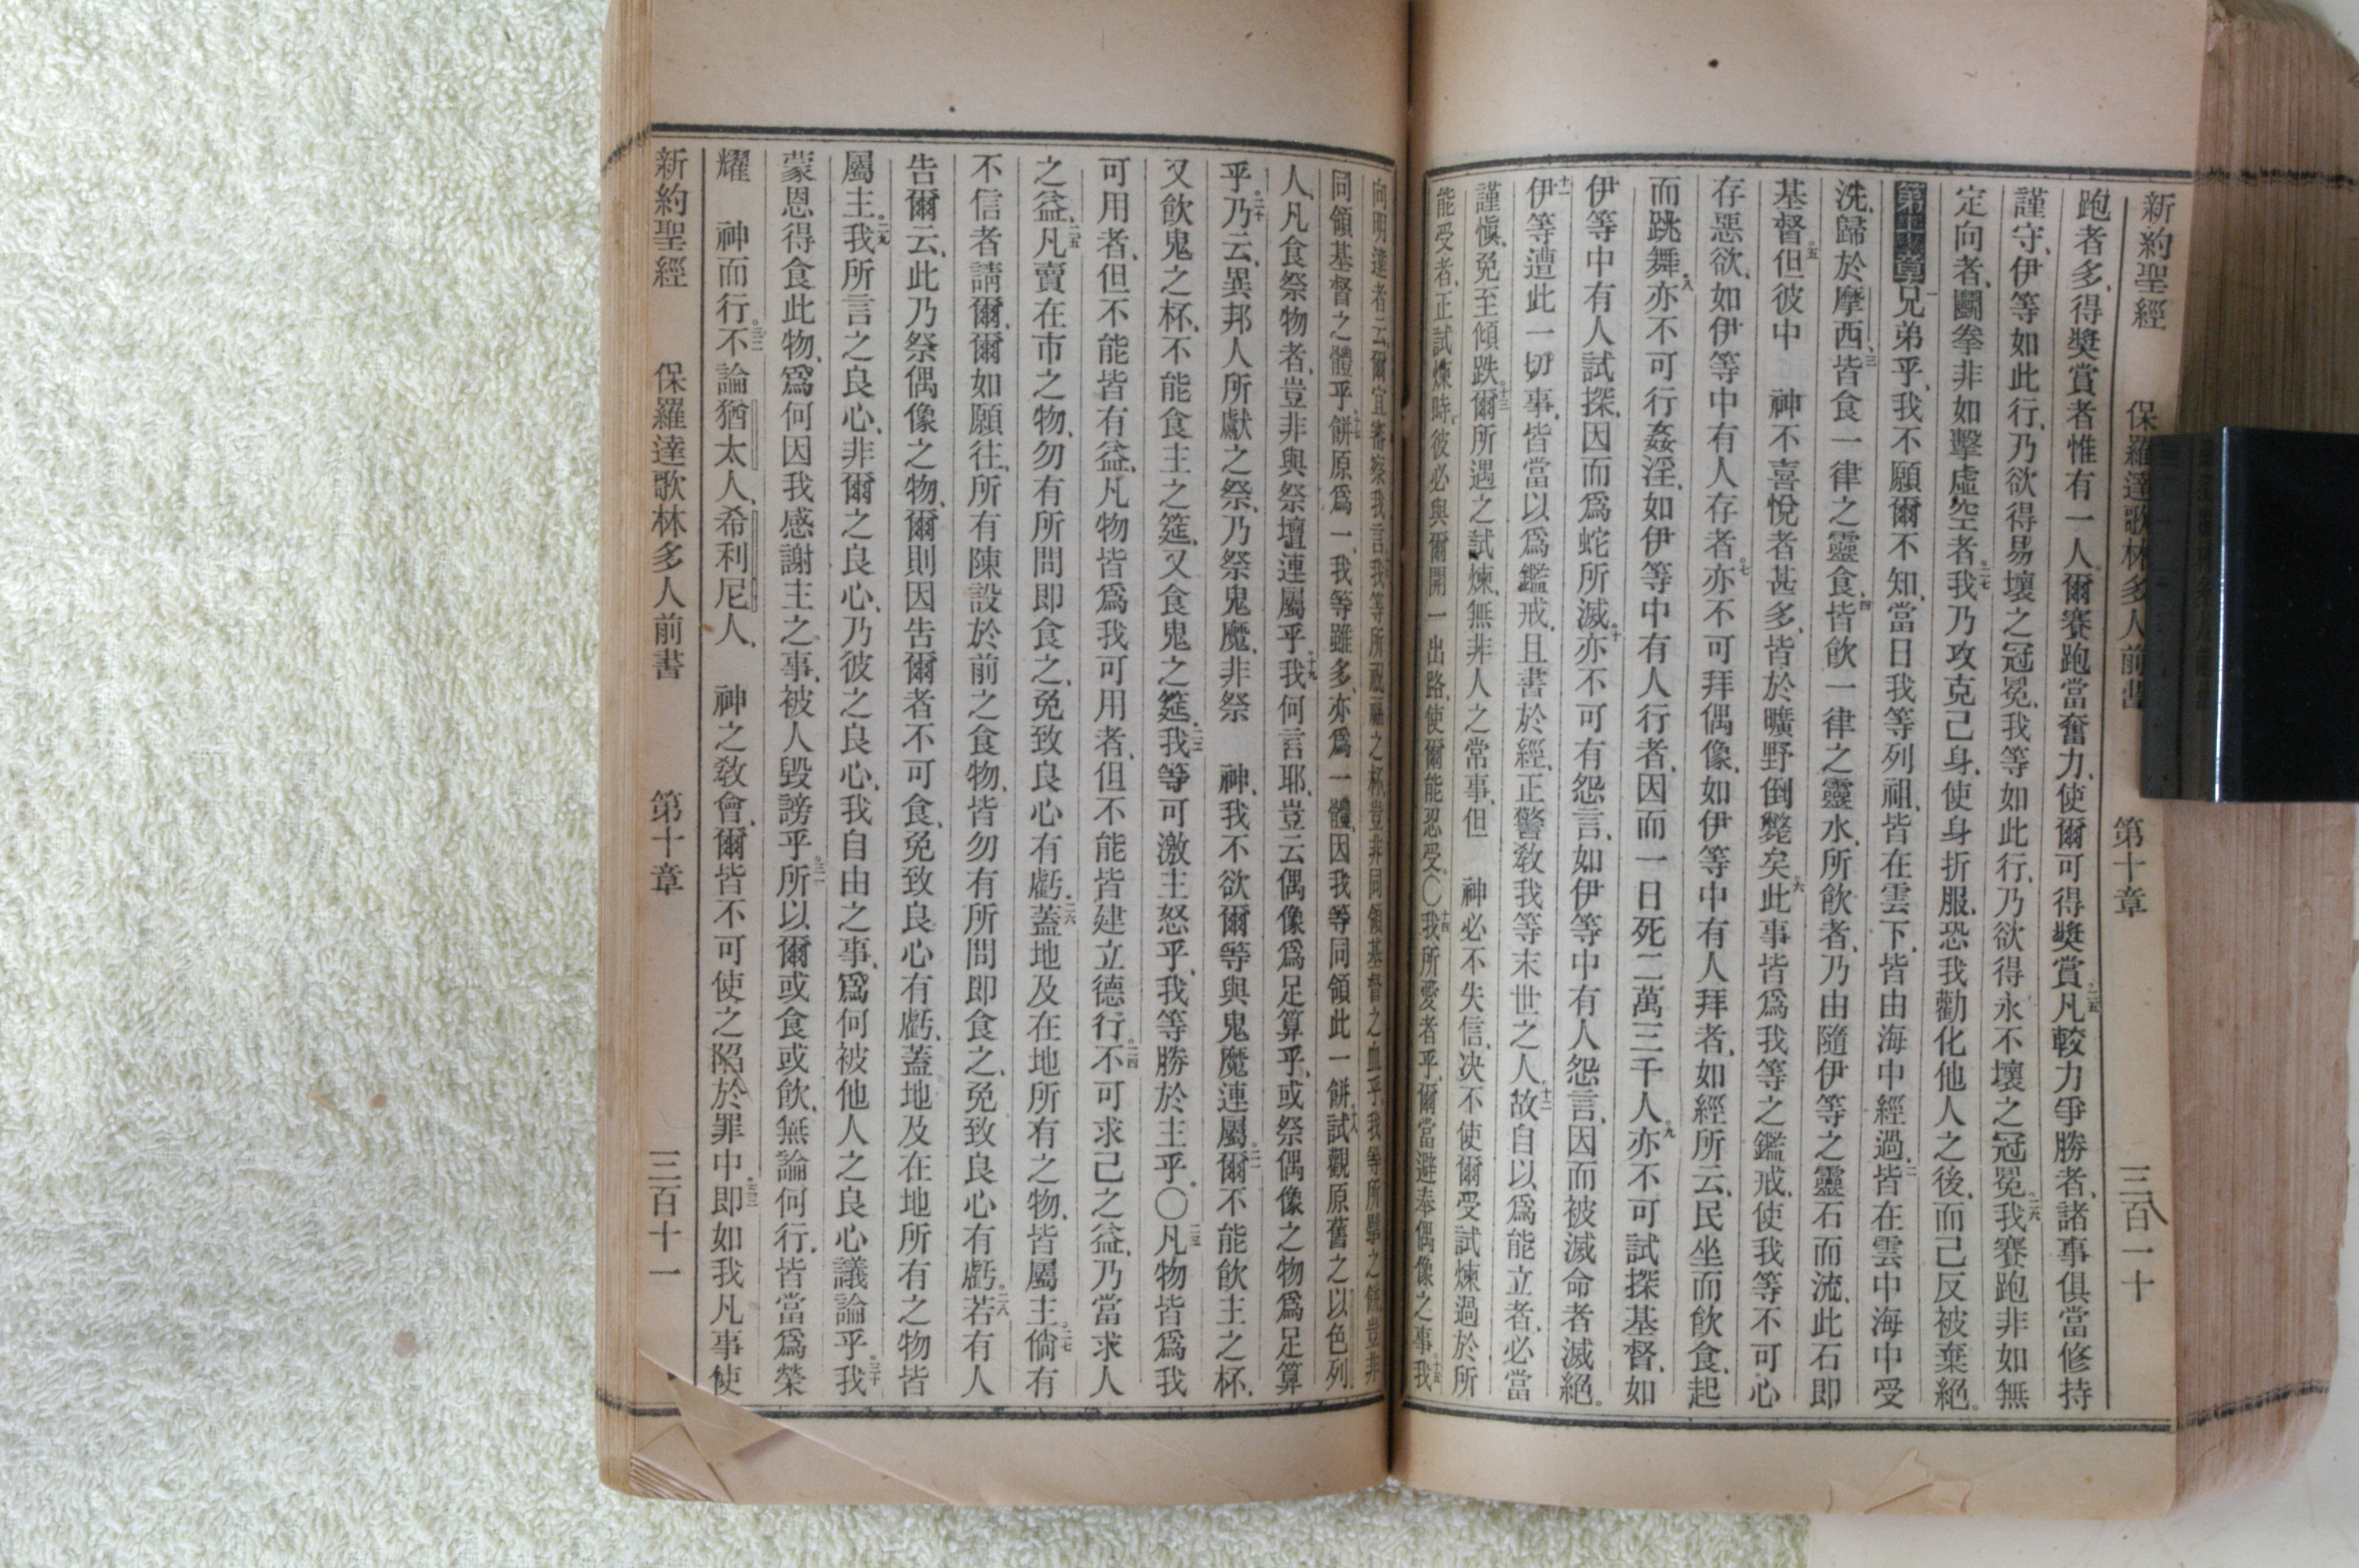 新約聖經 保羅達歌林多人前書 第十章 三百一十
跑者多、得獎賞者惟有一人。爾賽跑當奮力、使爾可得獎賞。二五凡較力爭勝者、諸事俱當修持
謹守、伊等如此行、乃欲得易壞之冠冕、我等如此行、乃欲得永不壞之冠冕。二六我賽跑非如無
定向者、鬬拳非如擊虛空者。二七我乃攻克己身、使身折服、恐我勸化他人之後、而己反被棄絕。
第十章一兄弟乎、我不願爾不知、當日我等列祖、皆在雲下、皆由海中經過、二皆在雲中海中受
洗、歸於摩西、三皆食一律之靈食、四皆飲一律之靈水、所飲者、乃由隨伊等之靈石而流、此石即
基督。五但彼中 神不喜悅者甚多、皆於曠野倒斃矣。六此事皆爲我等之鑑戒、使我等不可心
存惡欲、如伊等中有人存者。七亦不可拜偶像、如伊等中有人拜者、如經所云、民坐而飲食、起
而跳舞。八亦不可行姦淫、如伊等中有人行者、因而一日死二萬三千人。九亦不可試探基督、如
伊等中有人試探、因而爲蛇所滅。十亦不可有怨言、如伊等中有人怨言、因而被滅命者滅絕。
十一伊等遭此一切事、皆當以爲鑑戒、且書於經、正警教我等末世之人。十二故自以爲能立者、必當
謹愼、免至傾跌。十三爾所遇之試煉、無非人之常事、但 神必不失信、決不使爾受試煉過於所
能受者、正試煉時、彼必與爾開一出路、使爾能忍受。〇十四我所愛者乎、爾當避奉偶像之事。十五我
向明達者云、爾宜審察我言。我等所祝福之杯、豈非同領基督之血乎、我等所擘之餅、豈非
同領基督之體乎。十七餅原爲一、我等雖多、亦爲一體、因我等同領此一餅。十八試觀原舊之以色列
人、凡食祭物者、豈非與祭壇連屬乎。十九我何言耶、豈云偶像爲足算乎、或祭偶像之物爲足算
乎。二十乃云、異邦人所獻之祭、乃祭鬼魔、非祭 神、我不欲爾等與鬼魔連屬。二一爾不能飲主之杯、
又飮鬼之杯、不能食主之筵、又食鬼之筵。二二我等可激主怒乎、我等勝於主乎。〇二三凡物皆爲我
可用者、但不能皆有益、凡物皆爲我可用者、但不能皆建立德行。二四不可求己之益、乃當求人
之益。二五凡賣在市之物、勿有所問即食之、免致良心有虧。二六蓋地及在地所有之物、皆屬主。二七倘有
不信者請爾、爾如願往、所有陳設於前之食物、皆勿有所問即食之、免致良心有虧。二八若有人
告爾云、此乃祭偶像之物、爾則因告爾者不可食、免致良心有虧、蓋地及在地所有之物皆
屬主。二九我所言之良心、非爾之良心、乃彼之良心、我自由之事、爲何被他人之良心議論乎。三十我
蒙恩得食此物、爲何因我感謝主之事、被人毀謗乎。三一所以爾或食或飲、無論何行、皆當爲榮
耀 神而行。三二不論猶太人、希利尼人、 神之教會、爾皆不可使之陷於罪中。三三即如我凡事使
新約聖經 保羅達歌林多人前書 第十章 三百十一